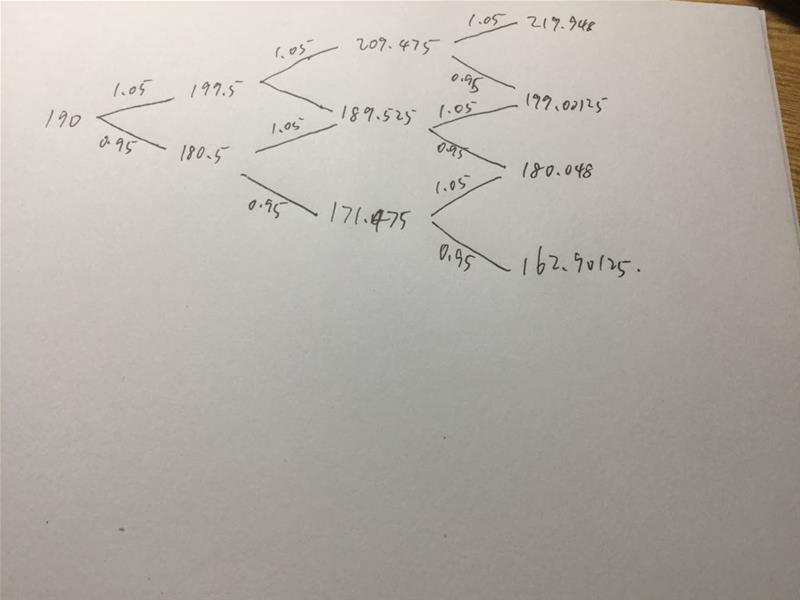 1.05 219.948
1.05 209.475
0.95
1.05 199.5 199.00125
190 189.525 1.05
1.05
0.95 180.5 0.95
180.048
1.05
0.95 171.475
0.95 162.90125.